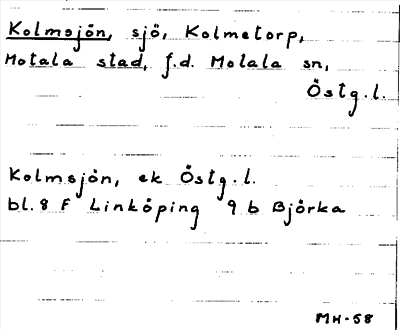 Kolmsjön, sjö, Kolmetorp,
Motala stad, f.d. Motala sn,
Östg.l.
Kolmsjön, ek Östg.l.
bl. 8 F Linköping 9 b Björka
MH-58